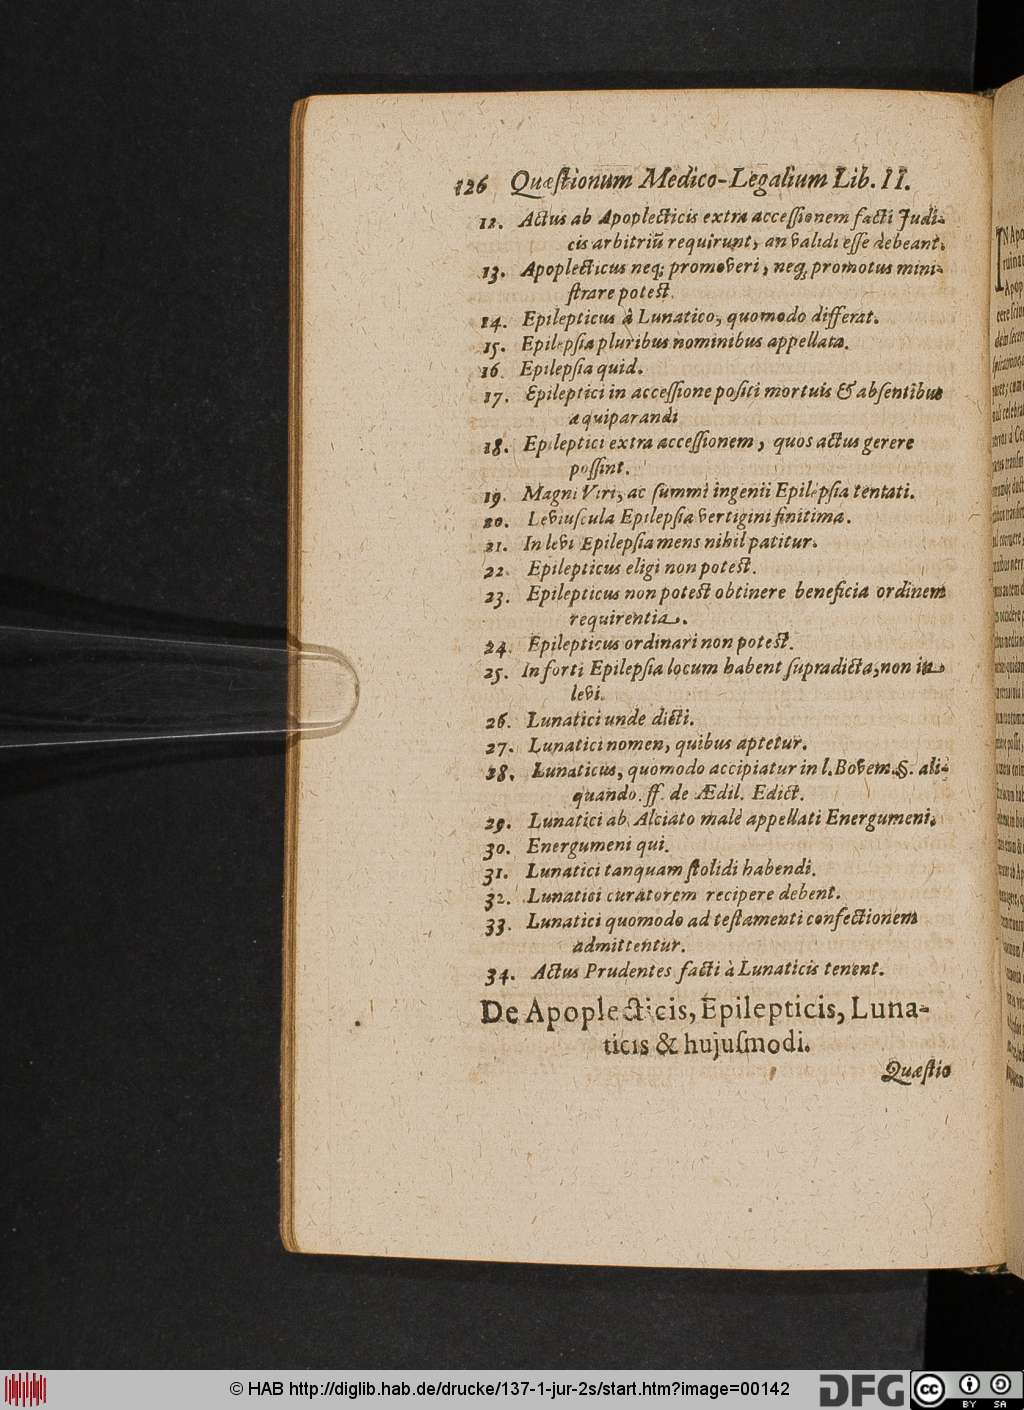 126 Quæſtionum Medico-Legalium Lib. II.
12. Actus ab Apoplecticis extra acceſſionem facti Judi-
cis arbitriũ requirunt, an validi eſſe debeant.
13. Apoplecticus neq; promoveri, neq; promotus mini-
ſtrare potest.
14. Epilepticus à Lunatico, quomodo differat.
15. Epilepſia pluribus nominibus appellata.
16. Epilepſia quid.
17. Epileptici in acceſſione poſiti mortuis & abſentibus
æquiparandi
18. Epileptici extra acceſſionem, quos actus gerere
poſſint.
19. Magni Viri, ac ſummi ingenii Epilepſia tentati.
20. Leviuſcula Epilepſia vertigini finitima.
21. In levi Epilepſia mens nihil patitur.
22. Epilepticus eligi non potest.
23. Epilepticus non potest obtinere beneficia ordinem
requirentia.
24. Epilepticus ordinari non potest.
25. In forti Epilepſia locum habent ſupradicta, non in
levi.
26. Lunatici unde dicti.
27. Lunatici nomen, quibus aptetur.
28. Lunaticus, quomodo accipiatur in l. Bovem. §. ali-
quando. ff. de Ædil. Edict.
29. Lunatici ab Alciato malè appellati Energumeni.
30. Energumeni qui.
31. Lunatici tanquam ſtolidi habendi.
32. Lunatici curatorem recipere debent.
33. Lunatici quomodo ad teſtamenti confectionem
admittentur.
34. Actus Prudentes facti à Lunaticis tenent.
De Apoplecticis, Epilepticis, Luna-
ticis & hujuſmodi.
Quæſtio
© HAB http://diglib.hab.de/drucke/137-1-jur-2s/start.htm?image=00142
DFG
cc BY SA